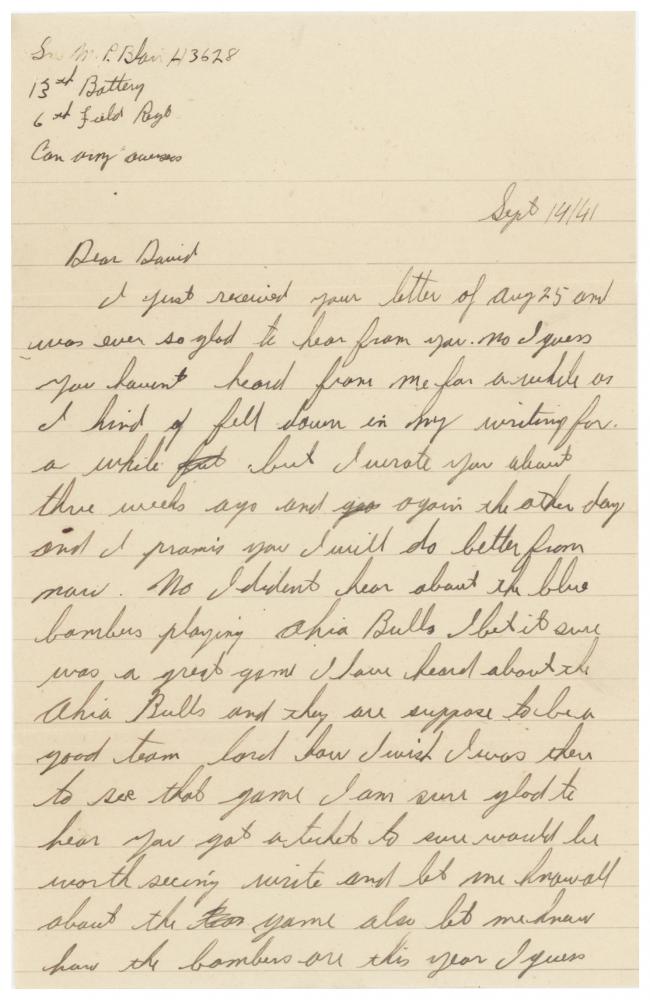 Gnr M. P. Blair H3628
13th Battery
6th Field Regt
Can army overseas
Sept 14/41
Dear David
I just received your letter of Aug 25 and
was ever so glad to hear from you. No I guess
you havent heard from me for a while as
I kind of fell down in my writing for
a while but I wrote you about
three weeks ago and again the other day
and I promis you I will do better from
now. No I dident hear about the blue
bombers playing Ohio Bulls I bet it sure
was a great game I have heard about the
Ohio Bulls and they are suppose to be a
good team lord how I wish I was there
to see that game I am sure glad to
hear you got a ticket to sure would be
worth seeing write and let me know all
about the game also let me know
how the bombers are this year I guess